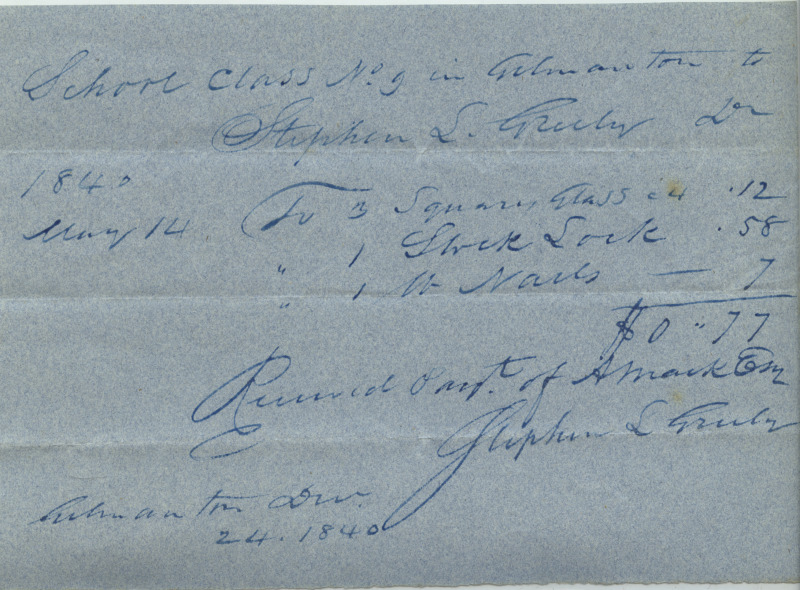 School Class No 9 in Gilmanton to
Stephen L. Greely Dr
1840
May 14 To 3 Squares Glass 4 .12
" 1 Stock Lock .58
" 1 lb Nails — 7
$0 " 77
Received Payt. of A Mack Esq
Stephen L Greely
Gilmanton Dec.
24. 1840